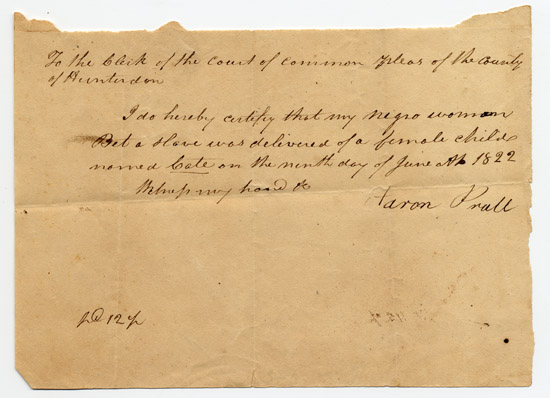 To the Clerk of the Court of Common pleas of the County
of Hunterdon
I do hereby certify that my negro woman
Bet a slave was delivered of a female child
named Cate on the ninth day of June AD 1822
Witness my hand &c
Aaron Prall
pd 12